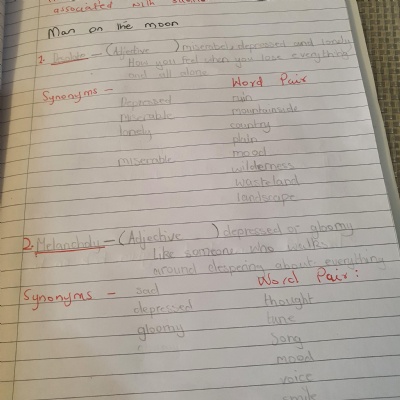 associated with
Man on the moon
1. (Adjective ) miserable, depressed and lonely
How you feel when you lose everything
and all alone
Synonyms - Word Pair
Depressed rain
miserable mountainside
lonely country
plain
miserable mood
wilderness
wasteland
landscape
2. Melancholy - (Adjective ) depressed or gloomy
Like someone who walks
around despering about everything
Synonyms - sad Word Pair:
depressed thought
gloomy tune
Song
mood
voice
smile